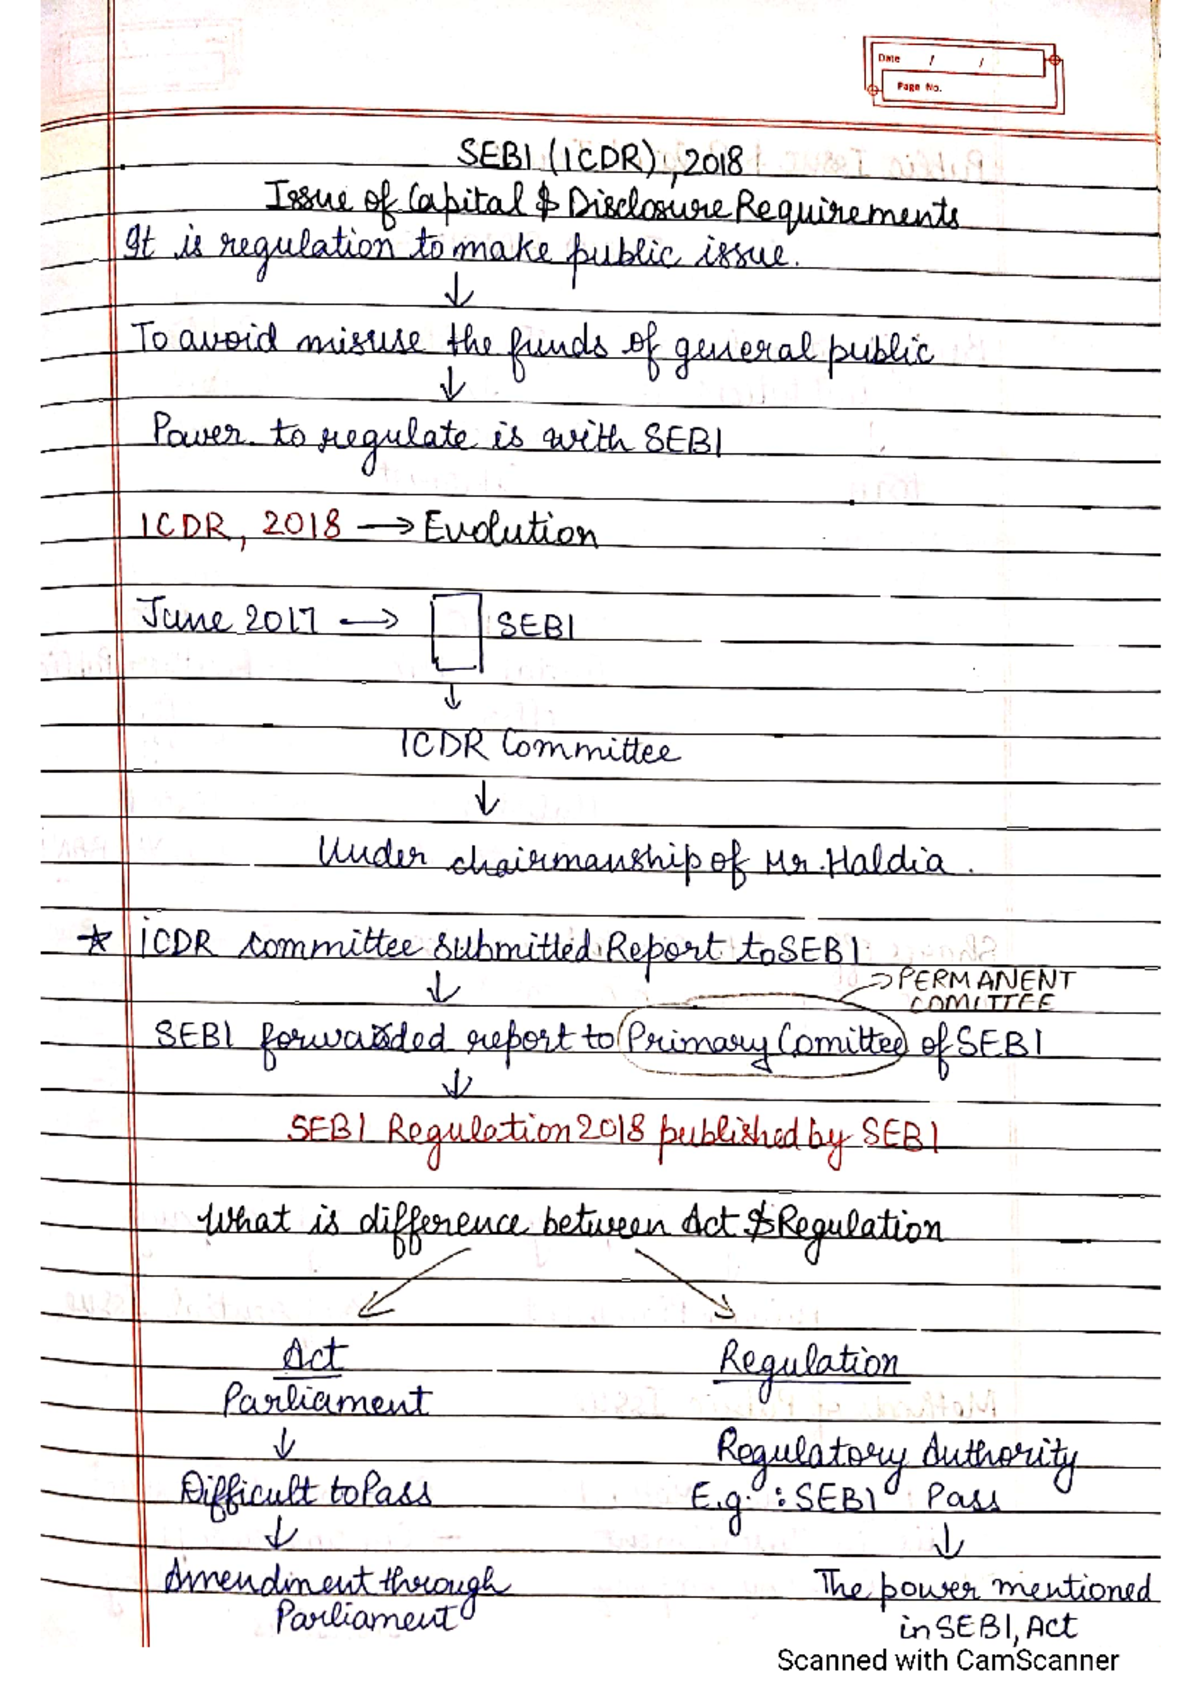 Date / /
Page No.
SEBI (ICDR), 2018
Issue of Capital & Disclosure Requirements
It is regulation to make public issue.
↓
To avoid misuse the funds of general public
↓
Power to regulate is with SEBI
ICDR, 2018 → Evolution
June 2017 → SEBI
↓
ICDR Committee
↓
Under chairmanship of Mr. Haldia.
* ICDR committee submitted Report to SEBI
↓
→ PERMANENT
COMITTEE
SEBI forwarded report to Primary Comittee of SEBI
↓
SEBI Regulation 2018 published by SEBI
What is difference between Act & Regulation
Act
Parliament
↓
Difficult to Pass
↓
Amendment through
Parliament
Regulation
Regulatory Authority
E.g : SEBI Pass
↓
The power mentioned
in SEBI, Act
Scanned with CamScanner